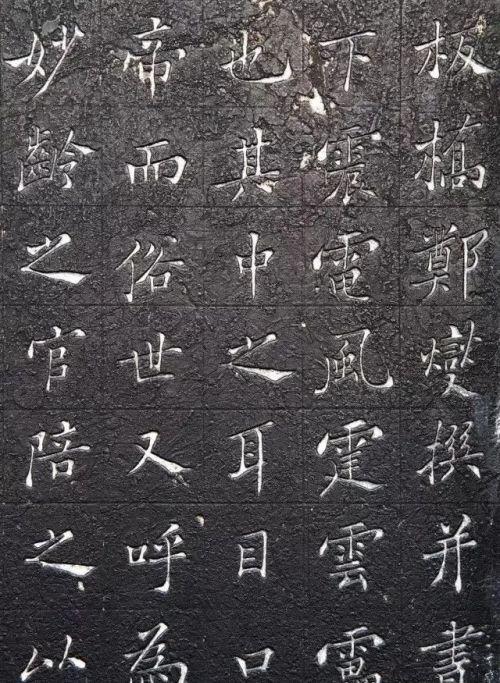 板橋鄭燮撰并書
下震電風霆雲
也其中之耳目口
帝而俗世又呼為
妙齡之官陪之以